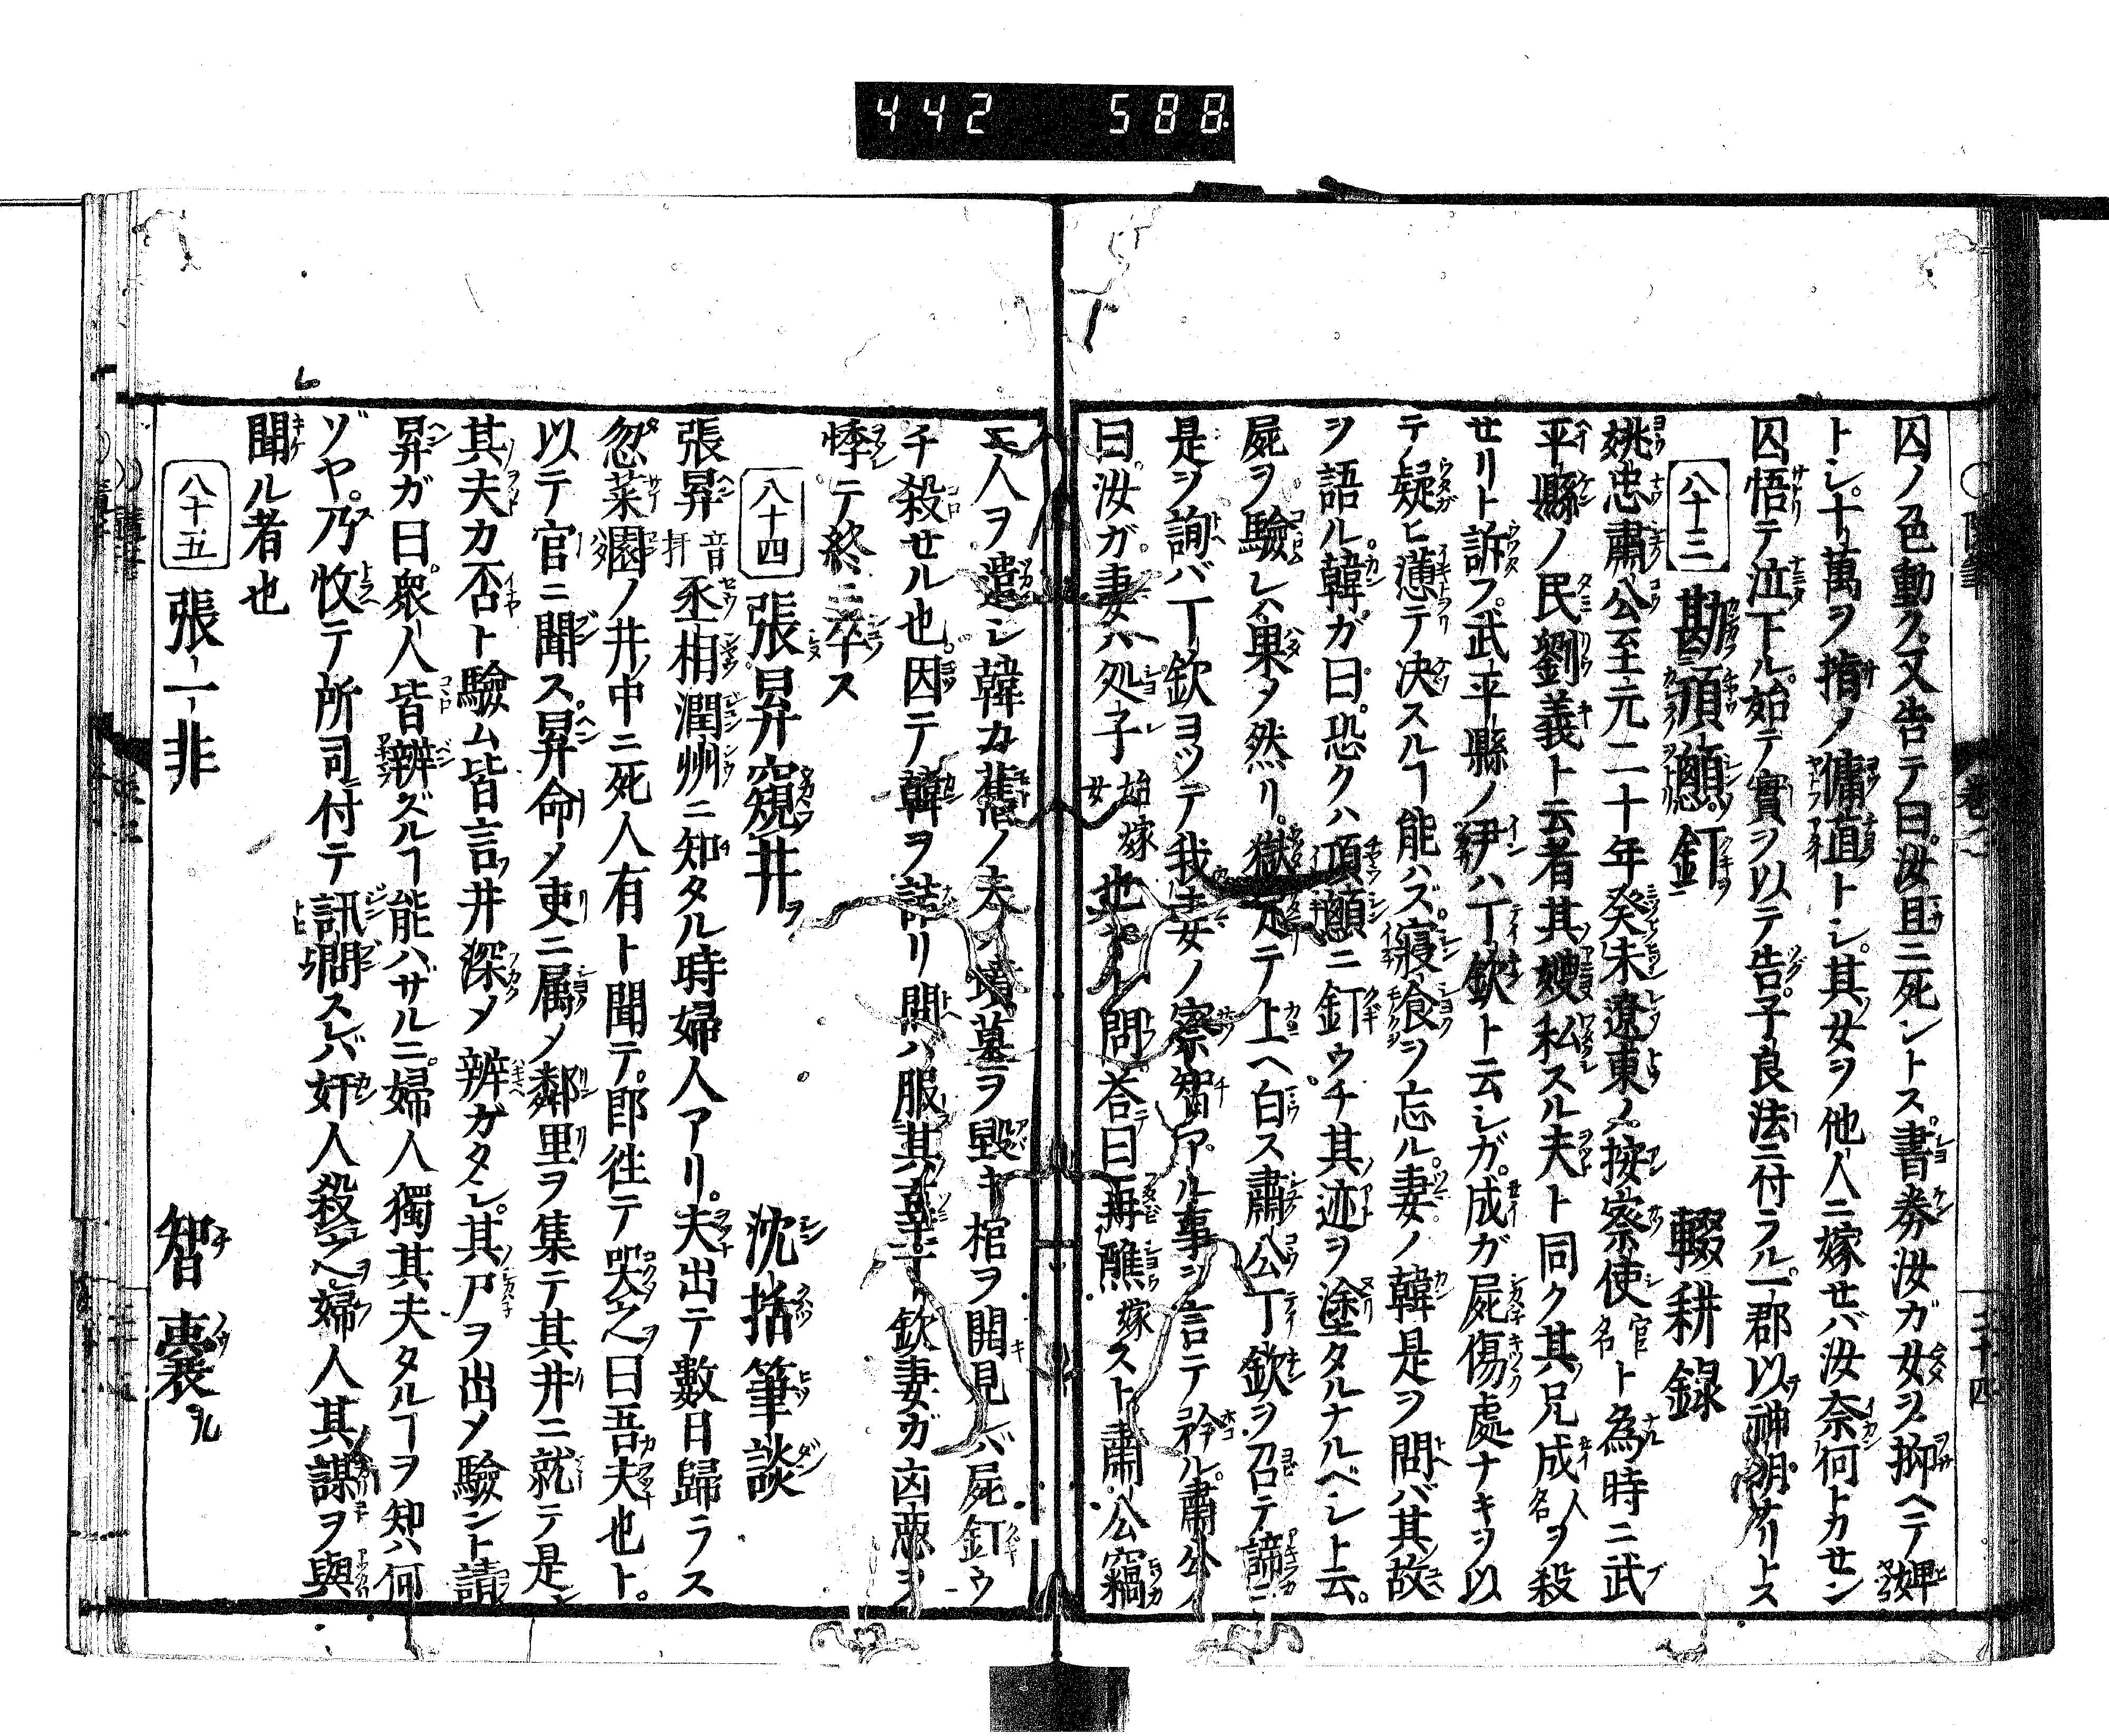 442 588
囚ノ色動ク又告テ曰汝且ニ死ントス書券汝ガ女ヲ抑ヘテ婢
トシ十萬ヲ揹メ傭直トシ其女ヲ他人ニ嫁セバ汝奈何トカセン
囚悟テ泣下ル始テ實ヲ以テ告子良法ニ付ラル一郡以神明ナリトス
八十三 勘頂顖釘 輟耕錄
姚忠肅公至元二十年癸未遼東ノ按察使官名ト為時ニ武
平縣ノ民劉義ト云者其嫂私スル夫ト同ク其兄成人名ヲ殺
セリト訴フ武平縣ノ伊ハ丁欽ト云シガ成ガ屍傷處ナキヲ以
テ疑ヒ懣テ決スルヿ能ハズ寢食ヲ忘ル妻ノ韓是ヲ問バ其故
ヲ語ル韓ガ曰恐クハ項顖ニ釘ウチ其迹ヲ塗タルナルベシト云
屍ヲ驗レバ果メ然リ獄定テ上ヘ白ス肅公丁欽ヲ召テ諦ニ
是ヲ詢バ丁欽ヨツテ我妻ノ察智アル事ヲ言テ衿ル肅公ノ
曰汝ガ妻ハ処子始嫁女也ト問答曰再醮嫁スト肅公竊
人ヲ遣シ韓カ舊ノ夫ノ墳墓ヲ毀キ棺ヲ開見バ屍釘ウ
チ殺セル也因テ韓ヲ詰リ問ハ服其罪丁欽妻ガ凶悪ヲ
悸テ終ニ卒ス
八十四 張昇窺井ヲ 沈括筆談
張昇音丞相潤州ニ知タル時婦人アリ夫出テ數日歸ラス
忽菜園ノ井ノ中ニ死人有ト聞テ郎往テ哭之曰吾夫也ト
以テ官ニ聞ス昇命メ吏ニ属メ鄰里ヲ集テ其井ニ就テ是
其夫カ否ト驗ム皆言フ井深メ辨ガタシ其尸ヲ出メ驗ント請
昇ガ曰衆人皆辨ズルヿ能ハザルニ婦人獨其夫タルヿヲ知ハ何
ゾヤ乃收テ所司ニ付テ訊問スレバ奸人殺之婦人其謀ヲ與
聞ル者也
八十五 張一非 智囊